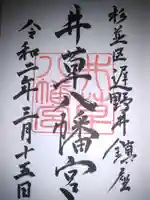 杉並区遅野井鎮座
井草八幡宮
令和二年三月十三日